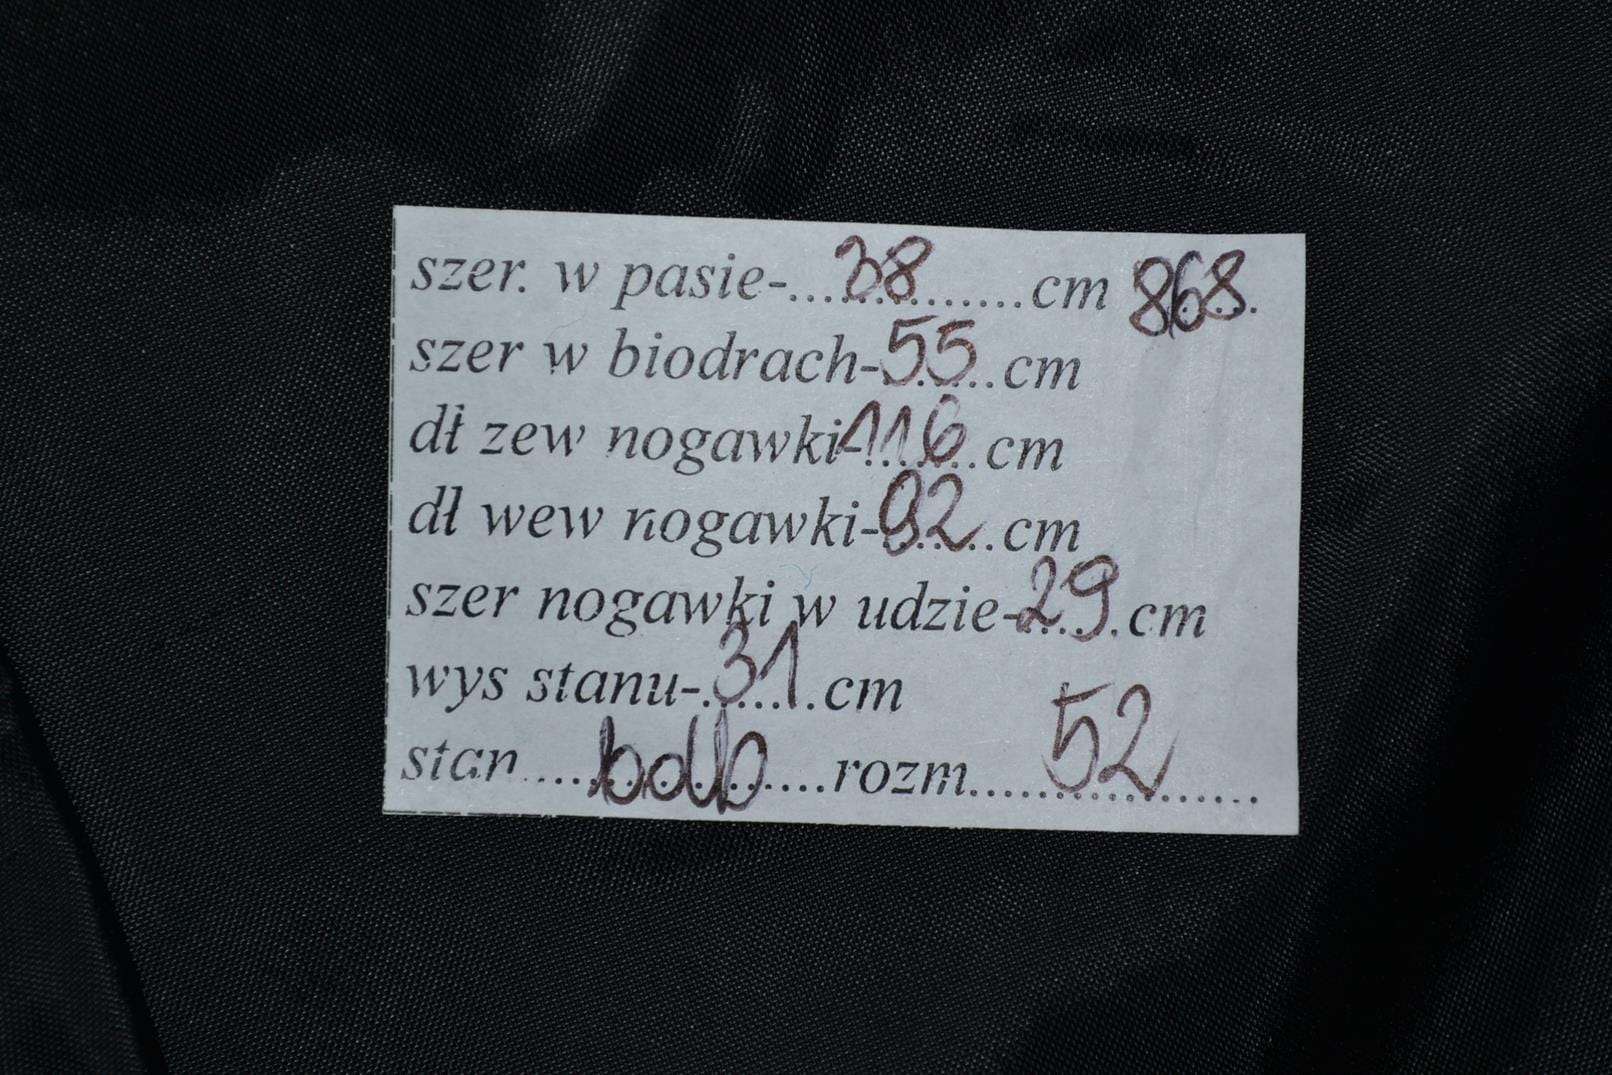 szer. w pasie-....38..............cm 868.
szer w biodrach-55......cm
dł zew nogawki-116......cm
dł wew nogawki-92......cm
szer nogawki w udzie-29.....cm
wys stanu-.31.....cm
stan....bdb......rozm....52..............